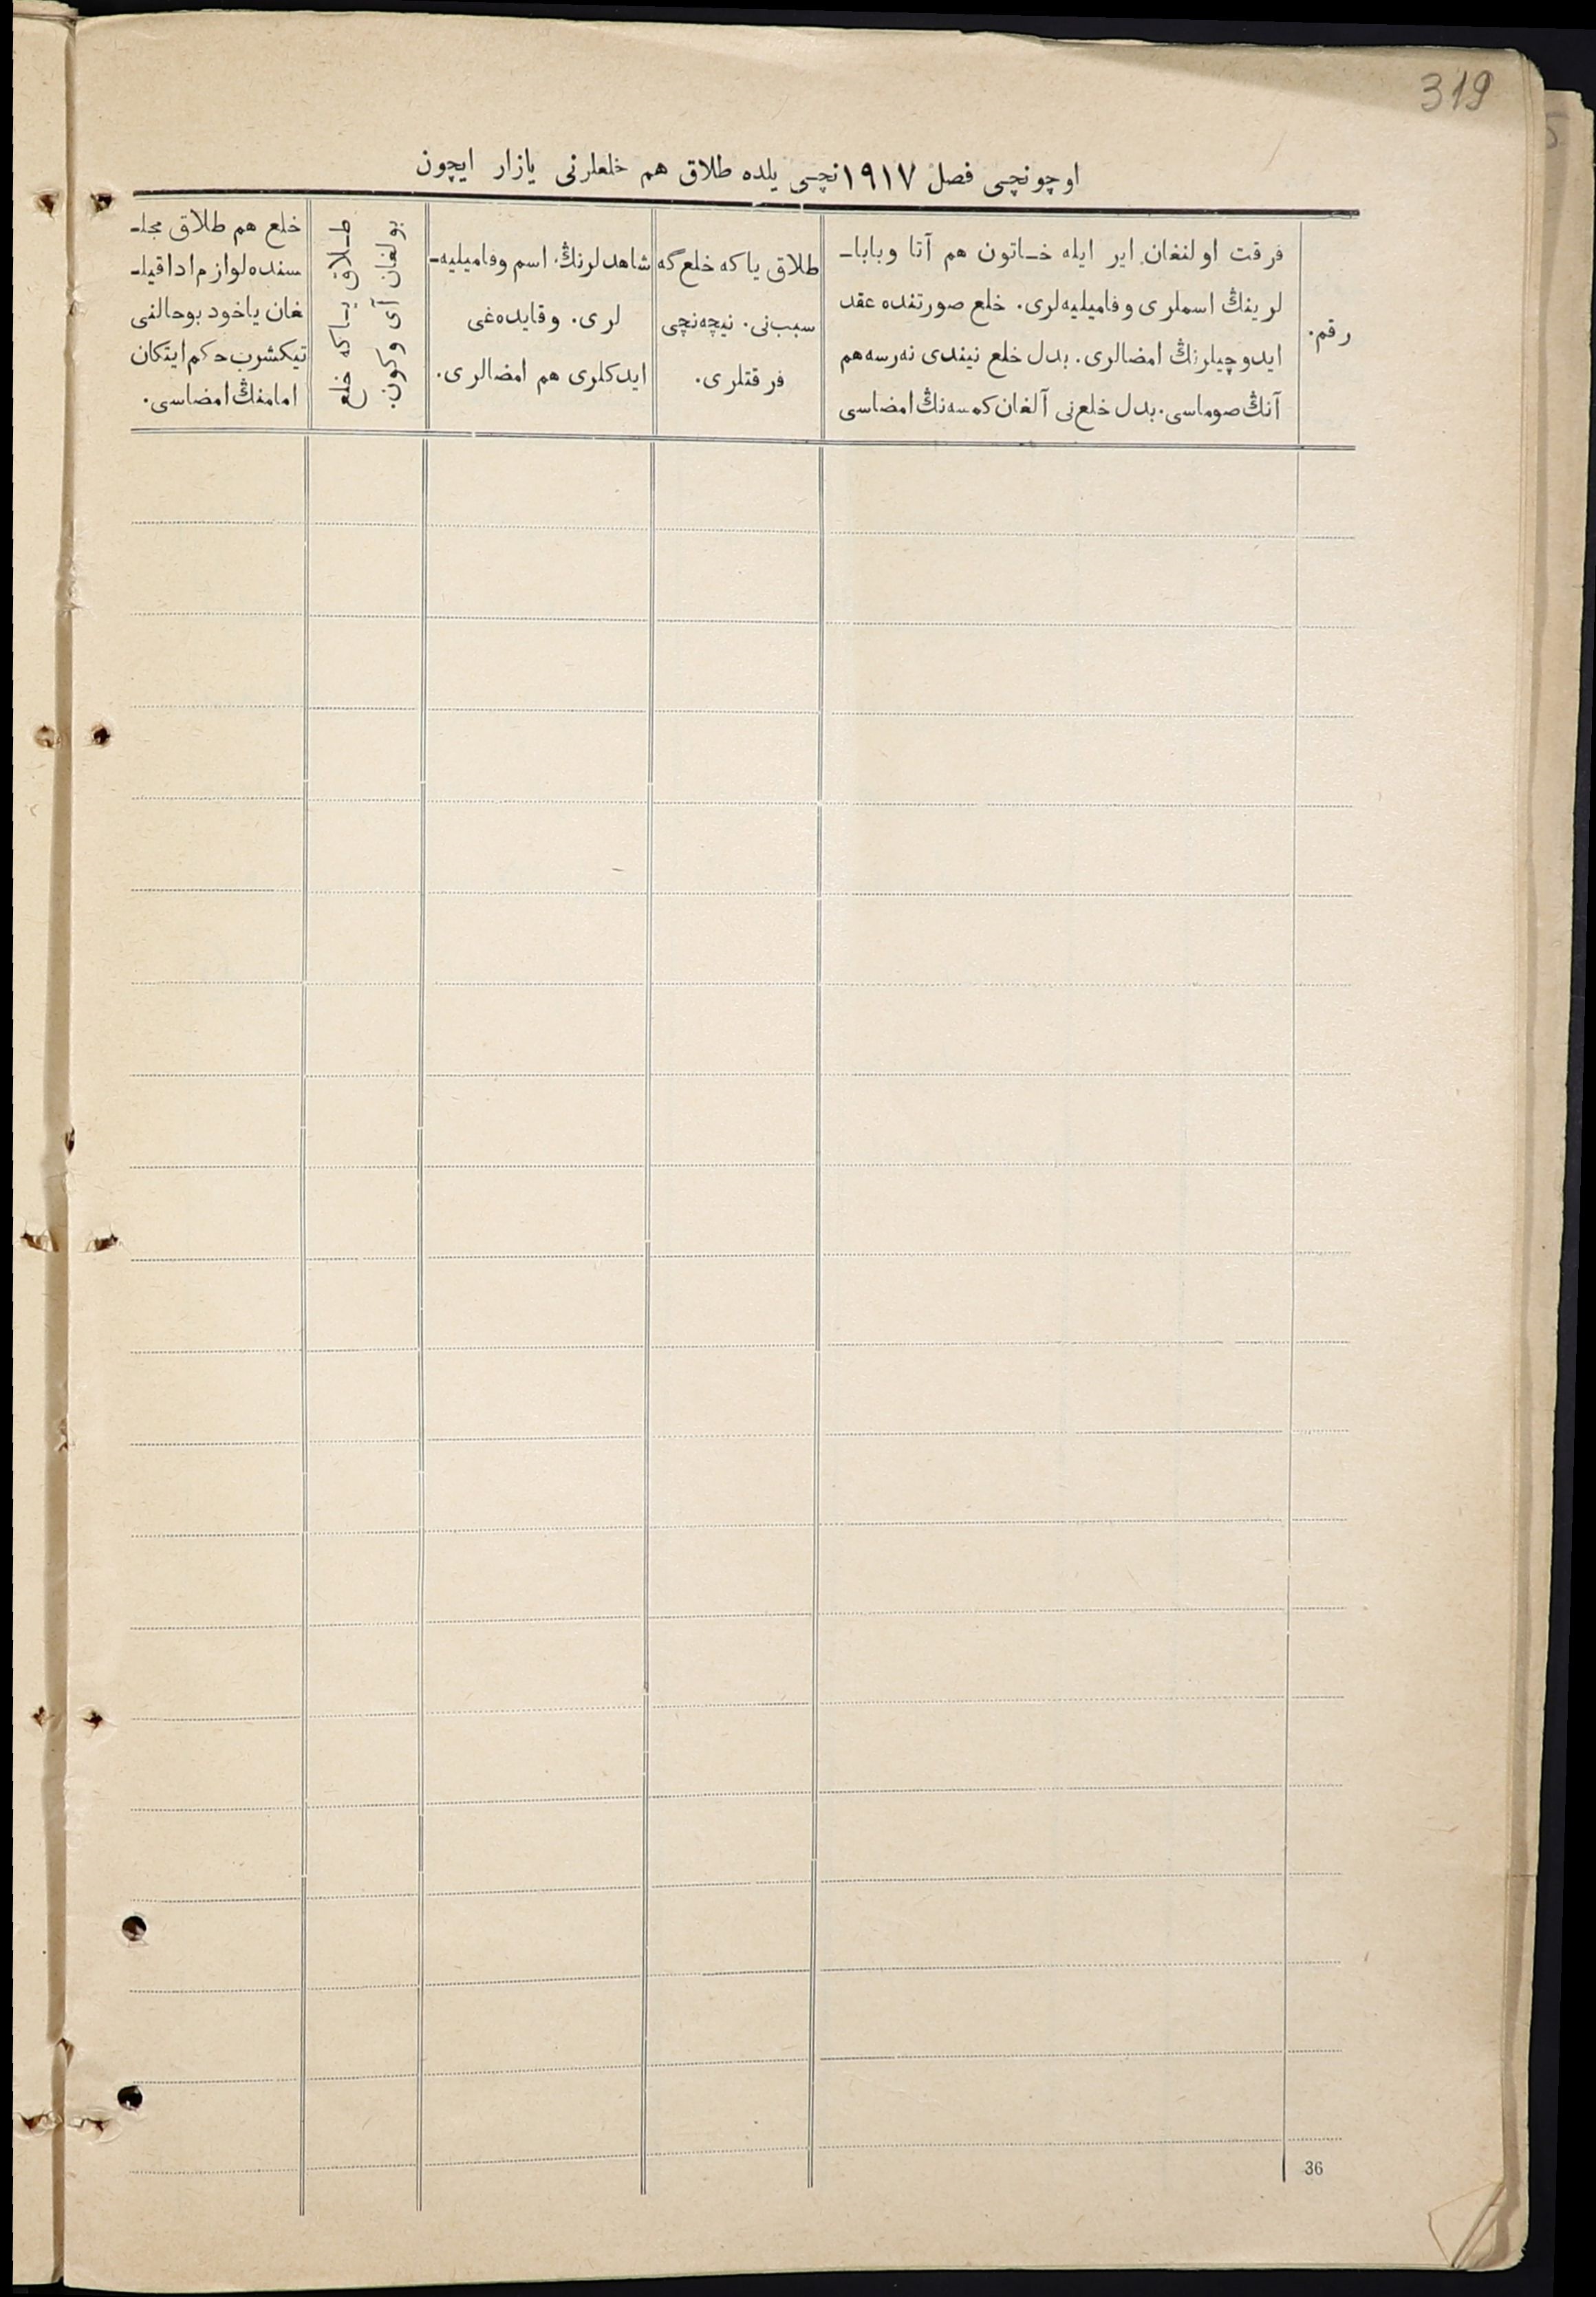 319
اوچونچی فصل ١٩١٧نچی یلده طلاق هم خلعلرنی یازار ایچون
رقم.
فرقت اولنغان ایر ایله خـاتون هم آتا وبابا‌ـ
لرینڭ اسملری وفامیلیه‌لری. خلع صورتنده عقد
ایدوچیلرنڭ امضالری. بدل خلع نیندی نه‌رسه‌هم
آنڭ صوماسی. بدل خلع‌نی آلغان کمسه‌نڭ امضاسی
طلاق یا که خلع گه
سبب‌نی. نیچه‌نچی
فرقتلری.
شاهدلرنڭ اسم وفامیلیه‌ـ
لری. وقایده‌غی
ایدکلری هم امضالری.
طـلاق یـا که خلع
بولغان آی وکون.
خلع هم طلاق مجلـ
سنده لوازم اداقیلـ
غان یاخود بوحالنی
تیکشرب حکم ایتکان
امامنڭ امضاسی.
36